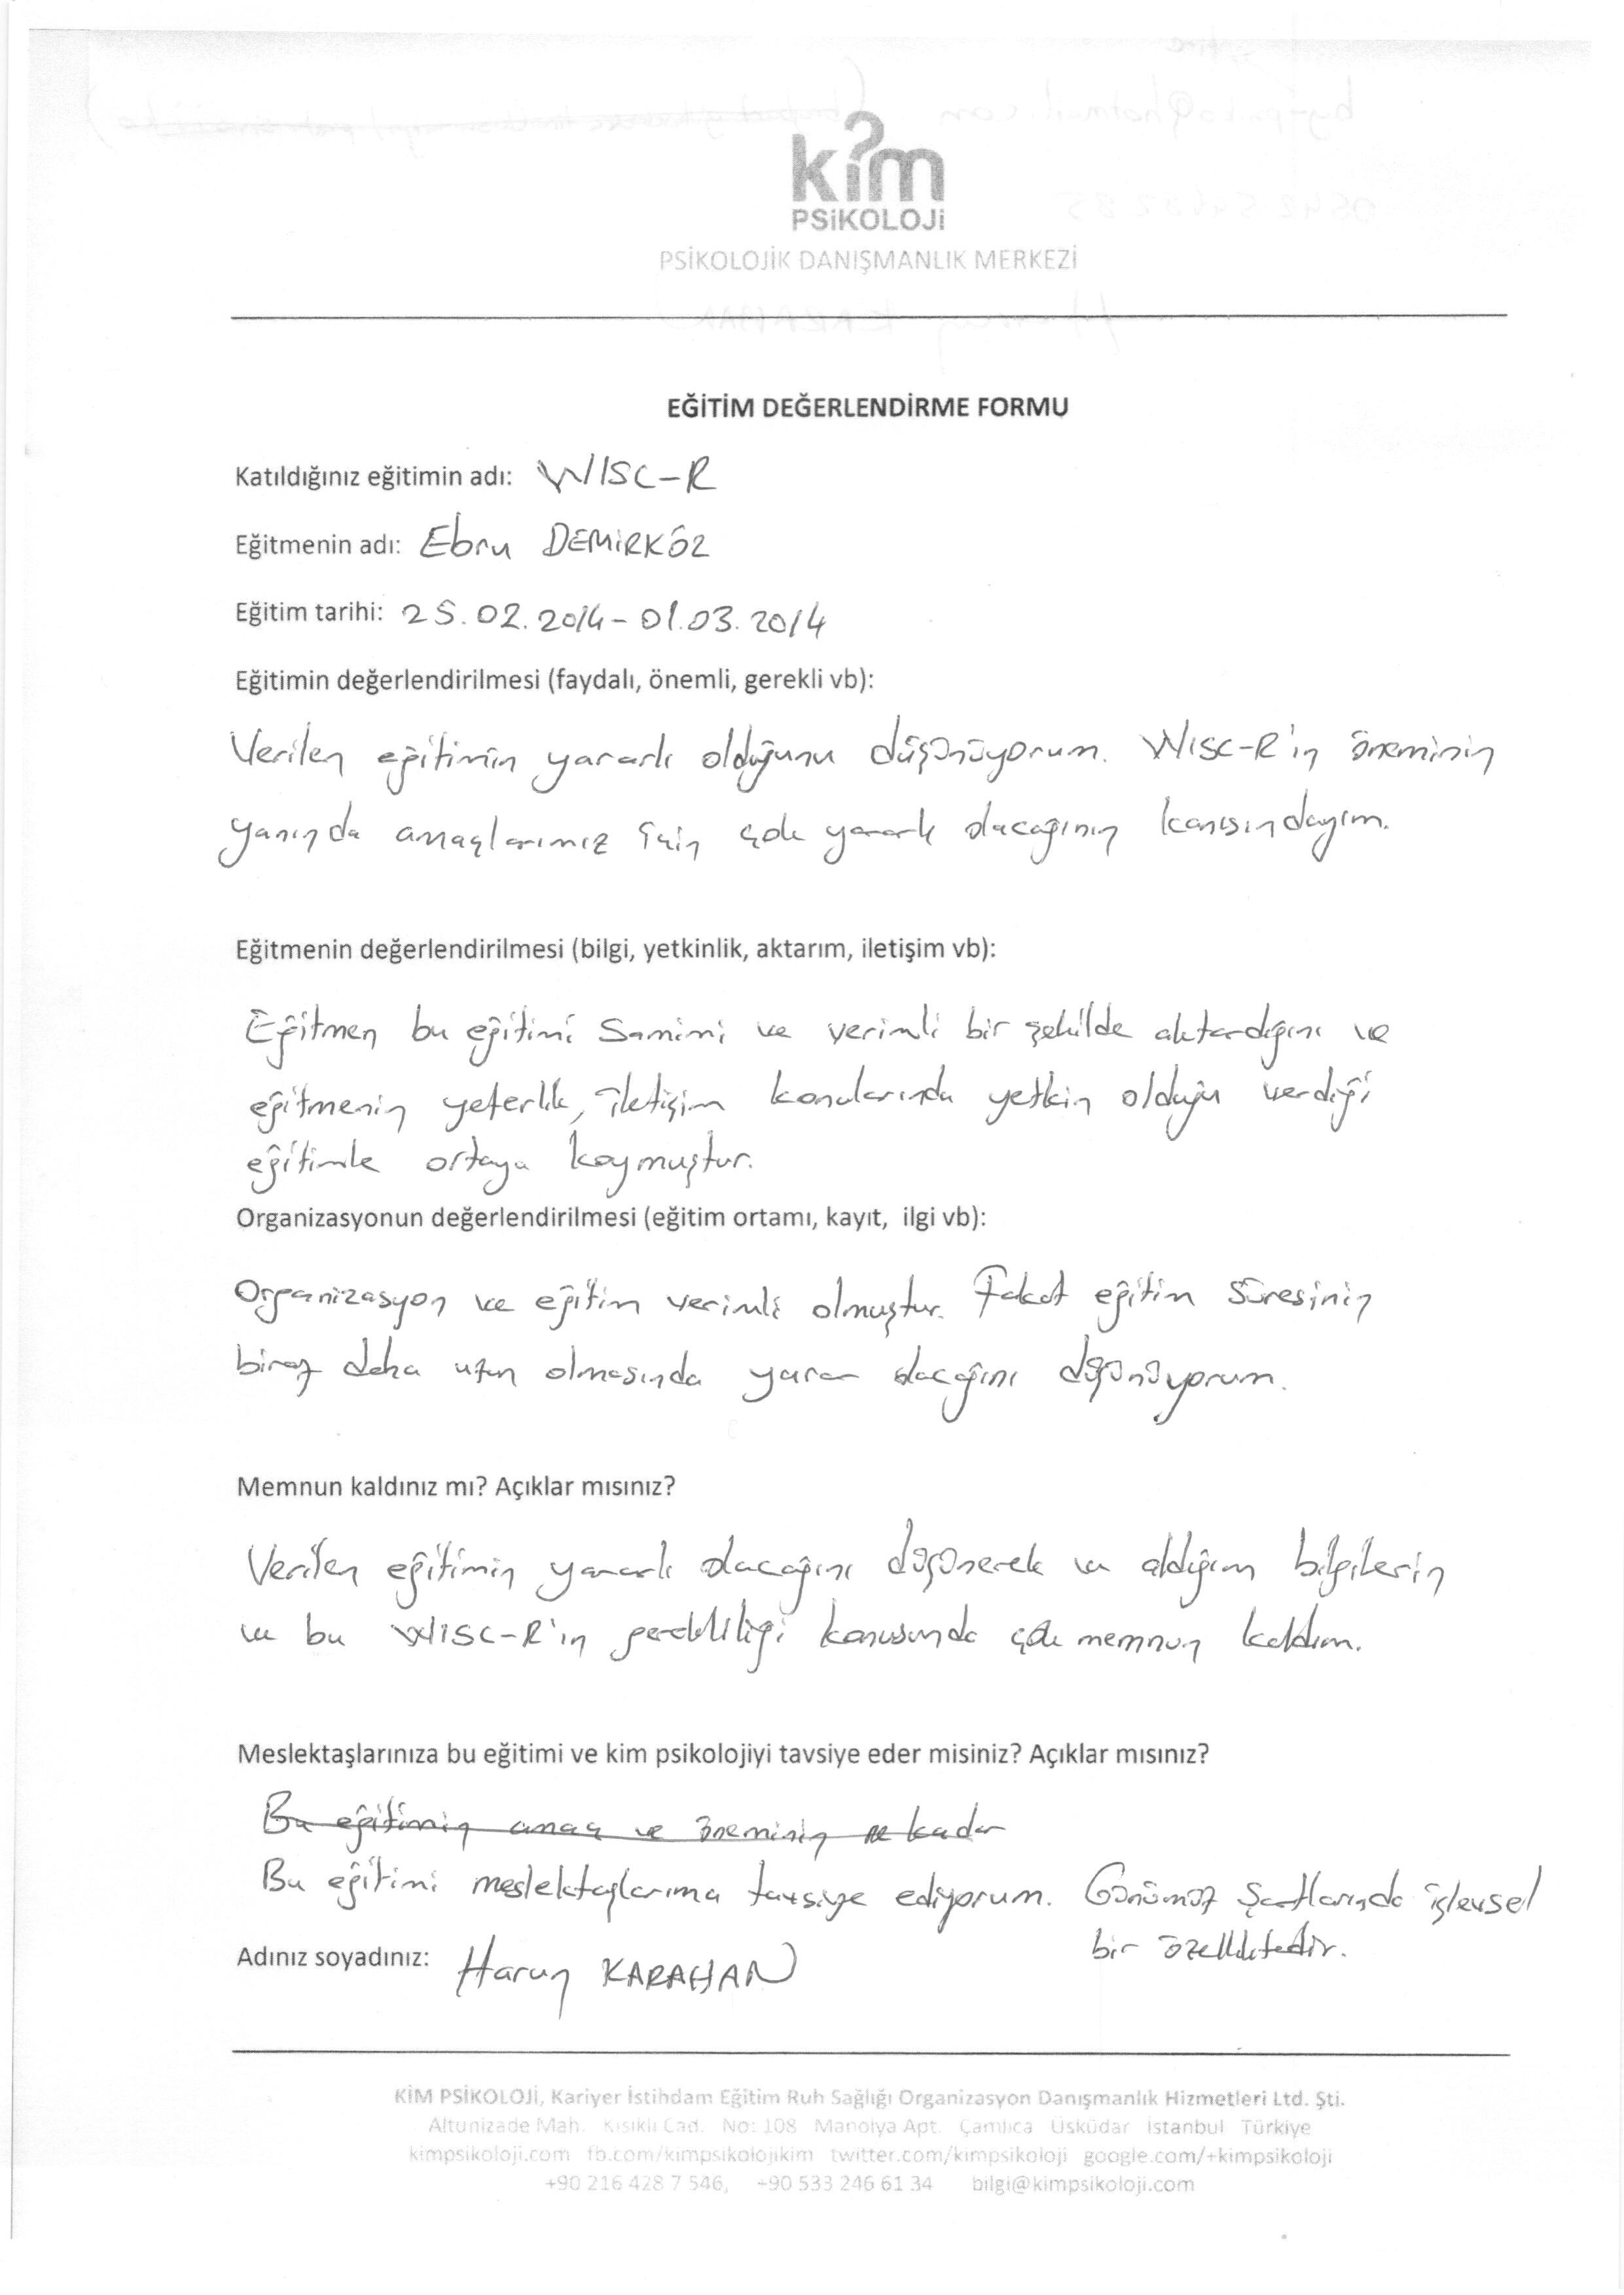 kim
PSiKOLOJi
PSİKOLOJİK DANIŞMANLIK MERKEZİ
EĞİTİM DEĞERLENDİRME FORMU
Katıldığınız eğitimin adı: WISC-R
Eğitmenin adı: Ebru DEMİRKÖZ
Eğitim tarihi: 25.02.2014 - 01.03.2014
Eğitimin değerlendirilmesi (faydalı, önemli, gerekli vb):
Verilen eğitimin yararlı olduğunu düşünüyorum. WISC-R'in öneminin
yanında amaçlarımız için çok yararlı olacağının kanısındayım.
Eğitmenin değerlendirilmesi (bilgi, yetkinlik, aktarım, iletişim vb):
Eğitmen bu eğitimi Samimi ve verimli bir şekilde aktardığını ve
eğitmenin yeterlik, iletişim konularında yetkin olduğu verdiği
eğitimle ortaya koymuştur.
Organizasyonun değerlendirilmesi (eğitim ortamı, kayıt, ilgi vb):
Organizasyon ve eğitim verimli olmuştur. Fakat eğitim süresinin
biraz daha uzun olmasında yarar olacağını düşünüyorum.
Memnun kaldınız mı? Açıklar mısınız?
Verilen eğitimin yararlı olacağını düşünerek ve aldığım bilgilerin
ve bu WISC-R'in gerekliliği konusunda çok memnun kaldım.
Meslektaşlarınıza bu eğitimi ve kim psikolojiyi tavsiye eder misiniz? Açıklar mısınız?
Bu eğitimin amaç ve öneminin ne kadar
Bu eğitimi meslektaşlarıma tavsiye ediyorum. Günümüz Şartlarında işlevsel
bir özelliktedir.
Adınız soyadınız: Harun KARAHAN
KİM PSİKOLOJİ, Kariyer İstihdam Eğitim Ruh Sağlığı Organizasyon Danışmanlık Hizmetleri Ltd. Şti.
Altunizade Mah. Kısıklı Cad. No: 108 Manolya Apt. Çamlıca Üsküdar İstanbul Türkiye
kimpsikoloji.com fb.com/kimpsikolojikim twitter.com/kimpsikoloji google.com/+kimpsikoloji
+90 216 428 7 546, +90 533 246 61 34 bilgi@kimpsikoloji.com